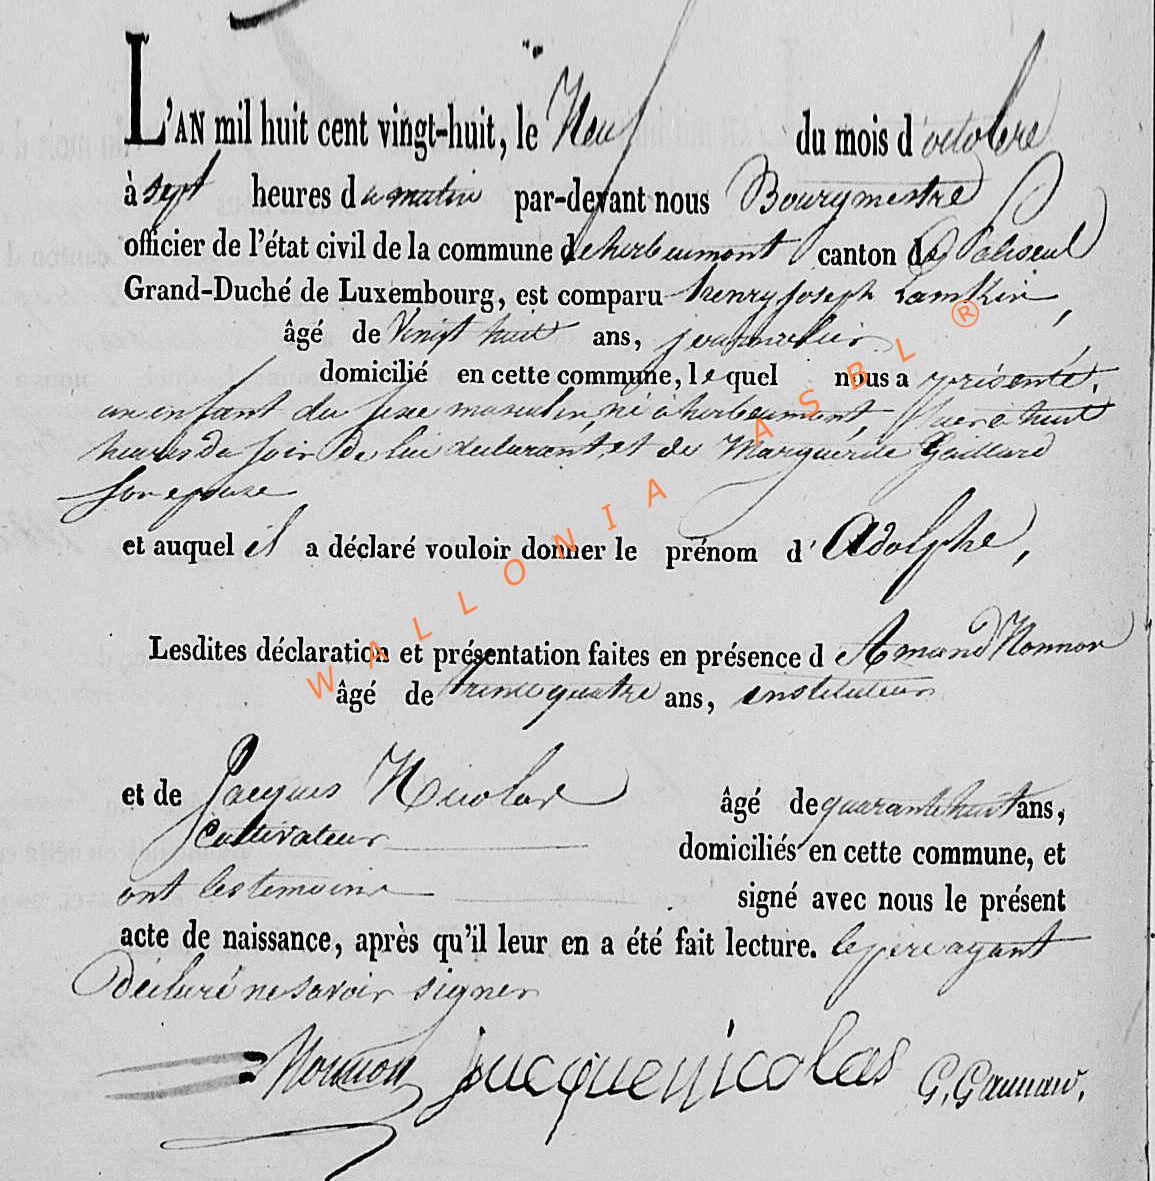 L'AN mil huit cent vingt-huit, le Neuf du mois d'octobre
à sept heures du matin par-devant nous Bourgmestre
officier de l'état civil de la commune de herbeumont canton de Paliseul
Grand-Duché de Luxembourg, est comparu henry joseph Lamkin,
âgé de Vingt huit ans, journalier
domicilié en cette commune, lequel nous a présenté,
un enfant du sexe masculin, né à herbeumont, hier à huit
heures du soir De lui declarant et de Marguerite Gaillard
son epouse
et auquel il a déclaré vouloir donner le prénom d'Adolphe,
Lesdites déclaration et présentation faites en présence d Amand Monnon
âgé de trente quatre ans, instituteur
et de Jacques Nicolas âgé de quarante huit ans,
cultivateur domiciliés en cette commune, et
ont les temoins signé avec nous le présent
acte de naissance, après qu'il leur en a été fait lecture. le père ayant
Déclaré ne savoir signer
Monnon Jacque nicolas G.
WALLONIA ASBL ®